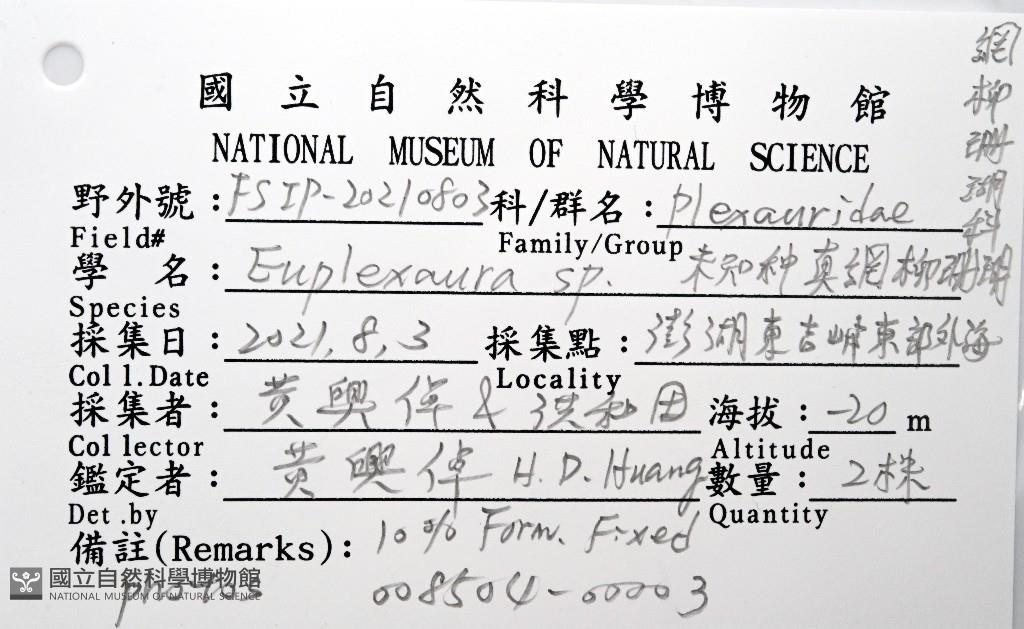 國立自然科學博物館
NATIONAL MUSEUM OF NATURAL SCIENCE
野外號：FSIP-20210803 科/群名：Plexauridae 網柳珊瑚科
Field# Family/Group
學名：Euplexaura sp. 未知种真網柳珊瑚
Species
採集日：2021,8,3 採集點：澎湖東吉嶼東部外海
Coll.Date Locality
採集者：黃興倬 & 洪和田 海拔：-20 m
Collector Altitude
鑑定者：黃興倬 H.D.Huang 數量：2株
Det.by Quantity
備註(Remarks)：10% Form. Fixed
photos 008504-00003
國立自然科學博物館
NATIONAL MUSEUM OF NATURAL SCIENCE